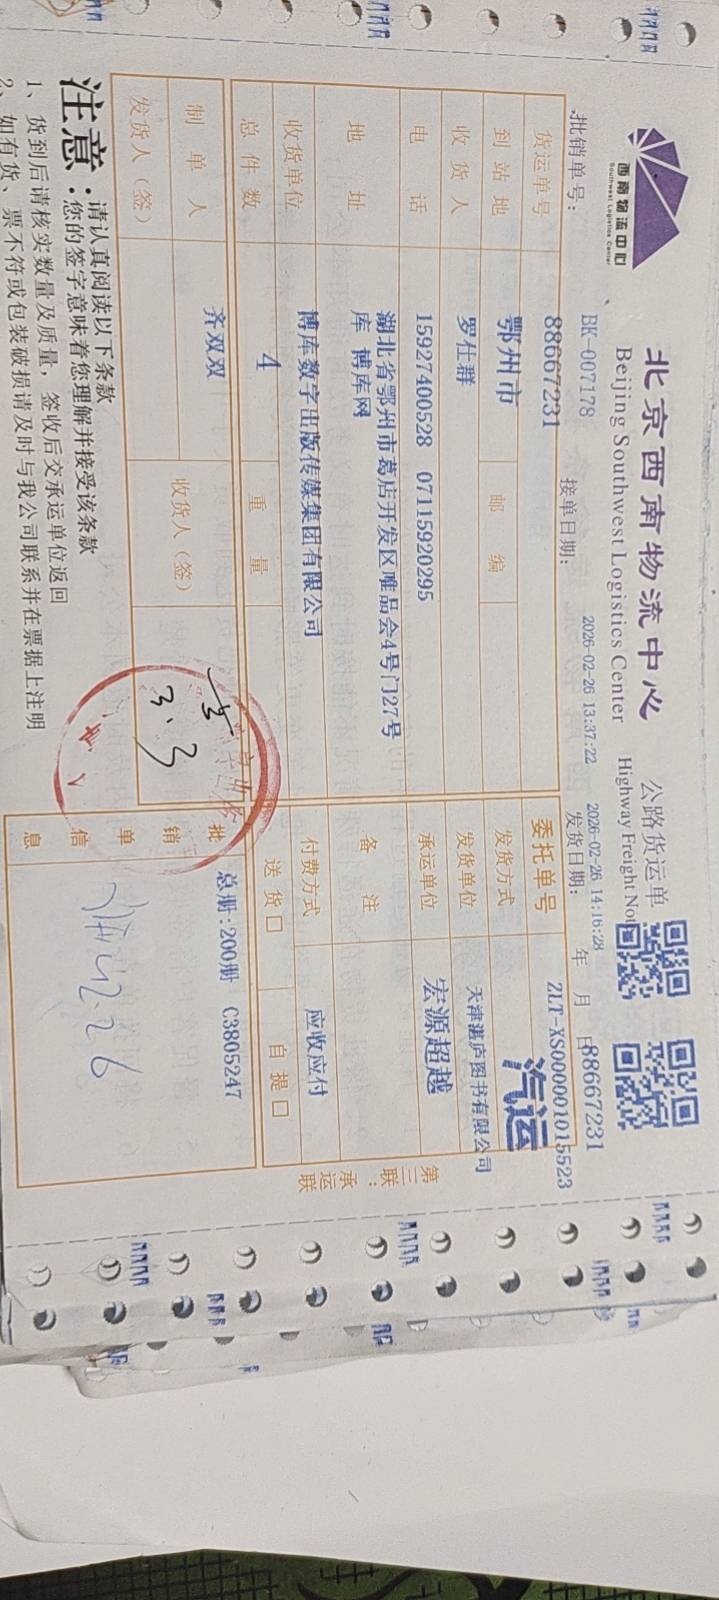 西南物流中心
Southwest Logistics Center
北京西南物流中心 公路货运单
Beijing Southwest Logistics Center Highway Freight Not
批销单号: BK-007178 接单日期: 2026-02-26 13:37:22 发货日期: 2026-02-26 14:16:28 年 月 日 88667231
货运单号 88667231 委托单号 ZLT-XS00000101 5523
到站地 鄂州市 邮编 发货方式 汽运
收货人 罗仕群 发货单位 天津湛庐图书有限公司
电话 15927400528 07115920295 承运单位 宏源超越
地址 湖北省鄂州市葛店开发区唯品会4号门27号
库 博库网
备注
收货单位 博库数字出版传媒集团有限公司 付费方式 应收应付
总件数 4 重量 送货□ 自提□
制单人 齐双双 收货人(签)
发货人(签)
3.3
批销单信息 总册:200册 C3805247
2.26
第三联:承运联
注意:请认真阅读以下条款
您的签字意味着您理解并接受该条款
1、货到后请核实数量及质量,签收后交承运单位返回
2、如有货、票不符或包装破损请及时与我公司联系并在票据上注明